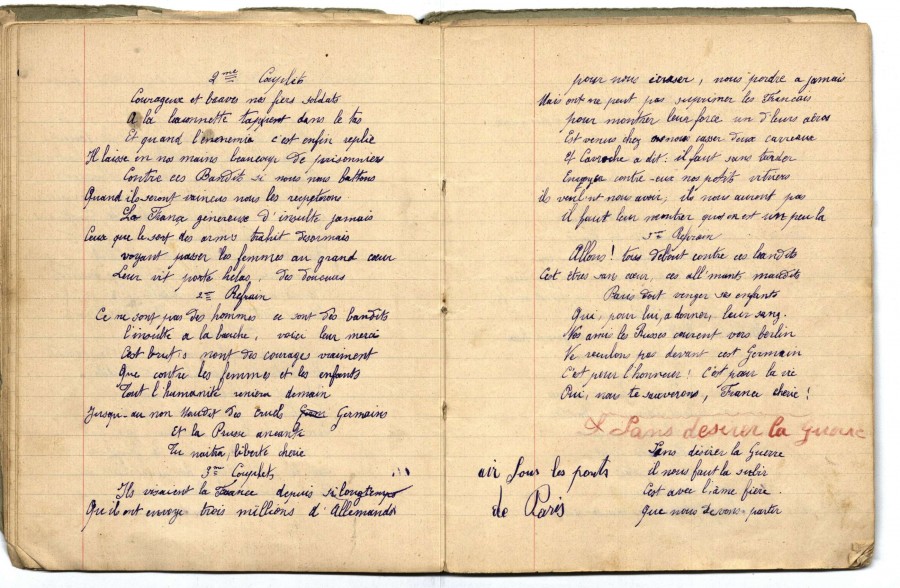 2me Couplet
Courageux et braves nos fiers soldats
A la baionnette tappent dans le tas
Et quand l'énonemie c'est enfin replié
Il laisse en nos mains beaucoup de prisonniers
Contre ces Bandits si nous nous battons
Quand ils seront vaincus nous les respeterons
La France généreuse n'insulte jamais
Ceux que le sort des armes trahit désormais
voyant passer les femmes au grand cœur
Leur vit porte hélas, des douceurs
2me Refrain
Ce ne sont pas des hommes ce sont des bandits
l'insulte a la bouche, voici leur merci
C'est brut,s n'ont des courage vraiment
Que contre les femmes et les enfants
Tout l'humanité reniera demain
Jusqu'au non Maudit des cruels Germains
Et la Prusse anéantie
Tu naitra, liberté chérie
3me Couplet
Ils visaient la France depuis si longtemps
Qu'il ont envoyé trois millions d'Allemands
pour nous écraser, nous perdre a jamais
Mais ont ne peut pas supprimer les Francais
pour montrer leur force un d'leurs aéros
Est venus chez nous casser deux carreaux
Et Gavroche a dit : il faut sans tarder
Envoyer contre eux nos petits vitriers
ils veul'nt nous avoir, ils nous auront pas
Il faut leur montrer qu'on est un peu la
3me Refrain
Allons! tous debout contre ces bandits
C'est êtres san cœur, ces all'mants maudits
Paris doit venger ses enfants
Qui, pour lui, a donner, leur sang.
Nos ami les Russes courent vers berlin
Ne reculon pas devant cest Germain
C'est pour l'honneur! C'est pour la vie
Oui, nous te sauverons, France chérie!
Sans désirer la guerre
air Sous les ponts
de Paris
Sans désirer la Guerre
il nous faut la subir
C'est avec l'âme fière
que nous devons partir